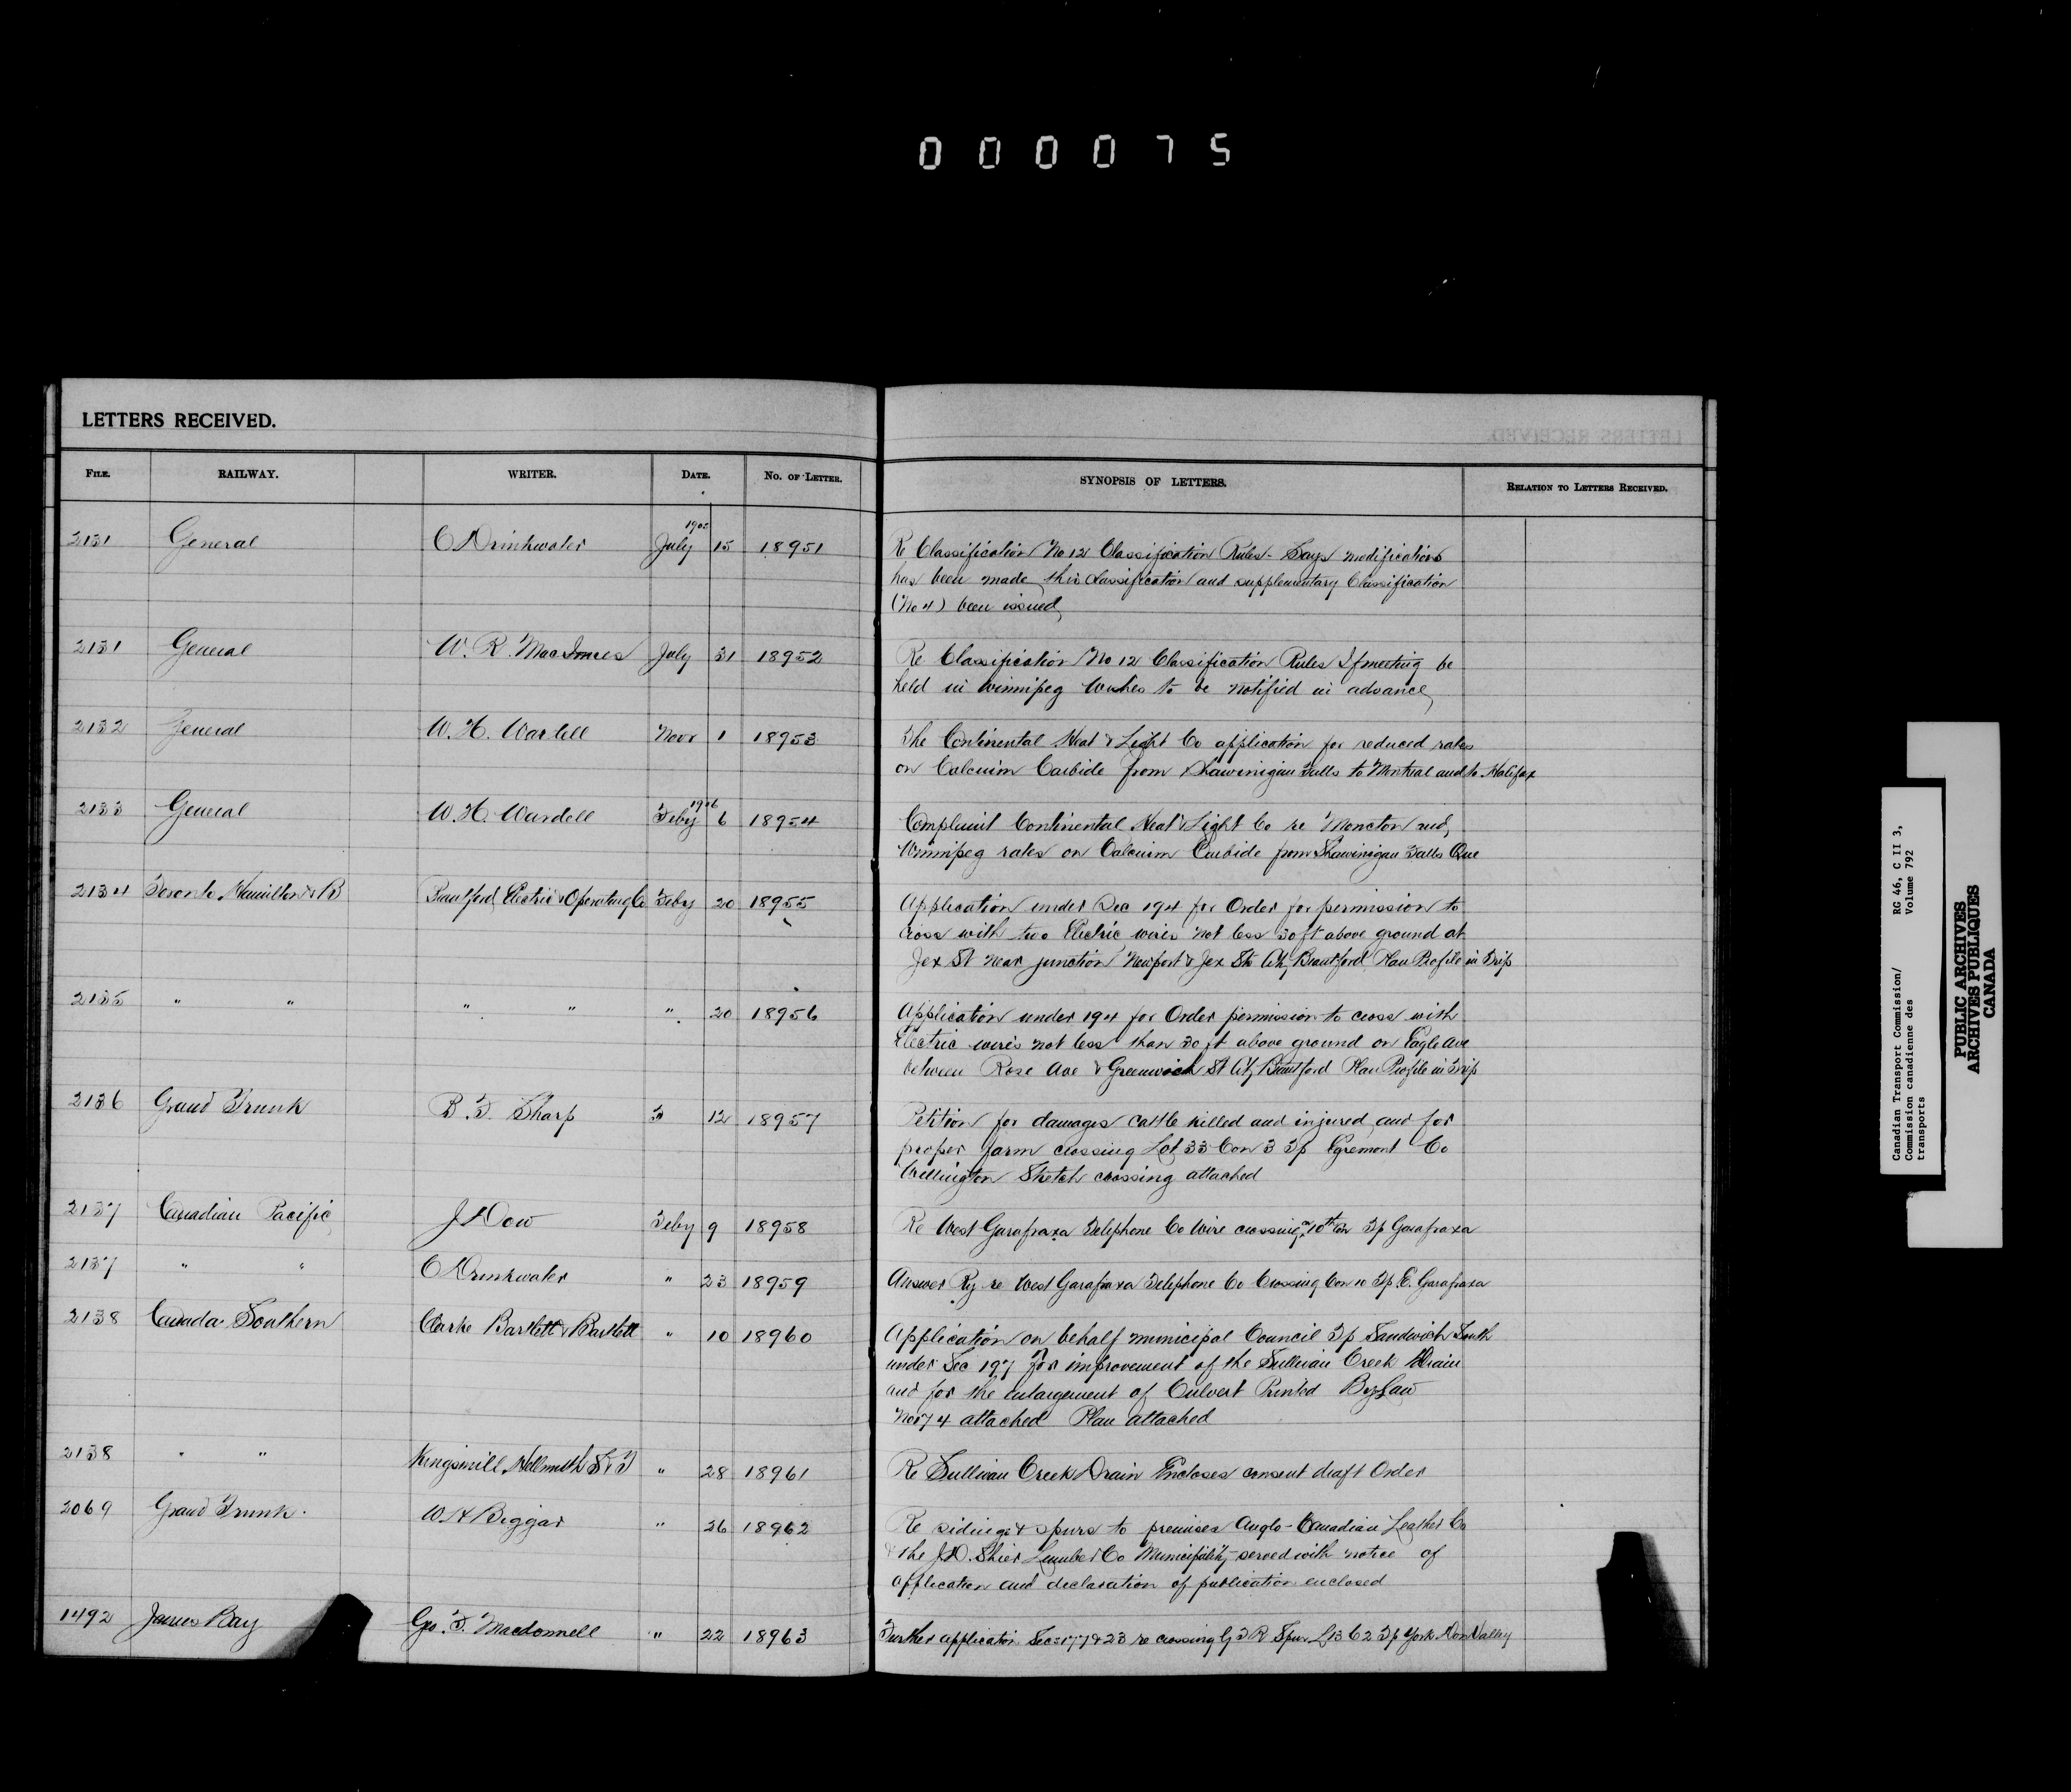 000075
LETTERS RECEIVED.
FILE. RAILWAY. WRITER. DATE. No. OF LETTER. SYNOPSIS OF LETTERS. RELATION TO LETTERS RECEIVED.
2131 General C Drinkwater July 15 18951 Re Classification No 12 Classification Rules - Says modifications
has been made this classification and supplementary Classification
(No 4) been issued
2131 General W. R. MacInnes July 31 18952 Re Classification No 12 Classification Rules If meeting be
held in Winnipeg Wishes to be notified in advance
2132 General W. H. Wardell Novr 1 18953 The Continental Heat & Light Co application for reduced rates
on Calcuim Carbide from Shawinigan Falls to Montreal and to Halifax
2133 General W. H. Wardell 1906 Feby 6 18954 Complaint Continental Heat & Light Co re Moncton and
Winnipeg rates on Calcuim Carbide from Shawinigan Falls Que
2134 Toronto Hamilton & B Brantford Electric & Operating Co Feby 20 18955 Application under Sec 194 for Order for permission to
cross with two Electric wires not less 30 ft above ground at
Jex St near junction Newport & Jex Sts City Brantford Plan Profile in Trip
2135 " " " " " 20 18956 Application under 194 for Order permission to cross with
Electric wires not less than 30 ft above ground on Eagle Ave
between Rose Ave & Greenwich St City Brantford Plan Profile in Trip
2136 Grand Trunk B. F. Sharp F 12 18957 Petition for damages cattle killed and injured and for
proper farm crossing Lot 33 Con 3 Tp Egremont Co
Wellington Sketch crossing attached
2137 Canadian Pacific J Dow Feby 9 18958 Re West Garafraxa Telephone Co Wire crossing 10th Con Tp Garafraxa
2137 " " C Drinkwater " 23 18959 Answer Ry re West Garafraxa Telephone Co Crossing Con 10 Tp E. Garafraxa
2138 Canada Southern Clarke Bartlett & Bartlett " 10 18960 Application on behalf municipal Council Tp Sandwich South
under Sec 197 for improvement of the Sullivan Creek Drain
and for the enlargement of Culvert Printed By Law
No 174 attached Plan attached
2138 " " Kingsmill Hellmuth S & T " 28 18961 Re Sullivan Creek Drain Encloses consent draft Order
2069 Grand Trunk. W H Biggar " 26 18962 Re sidings & spurs to premises Anglo-Canadian Leather Co
& the J.D. Shier Lumber Co Municipality served with notice of
application and declaration of publication enclosed
1492 James Bay Geo. F. Macdonnell " 22 18963 Further application Secs 177 & 23 re crossing G T R Spur L 13 C 2 Tp York Don Valley
Canadian Transport Commission/
Commission canadienne des
transports
RG 46, C II 3,
Volume 792
PUBLIC ARCHIVES
ARCHIVES PUBLIQUES
CANADA